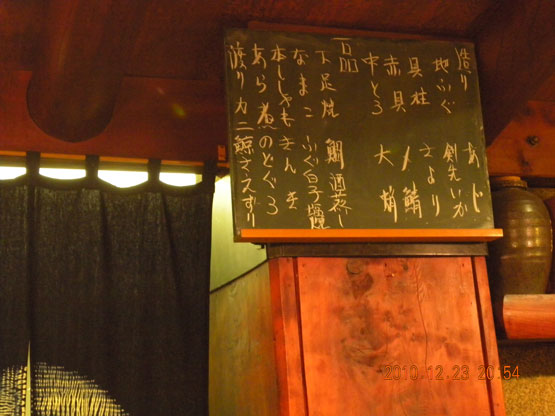 造り　あじ
地ふぐ　剣先いか
貝柱　さより
赤貝　〆鯖
中とろ　大蛸
一品
下足焼　鯛酒蒸し
なまこ　ふぐ白子
本ししゃも　きんき
あら煮　のどぐろ
渡りガニ　鯨さえずり
2010.12.23 20:54